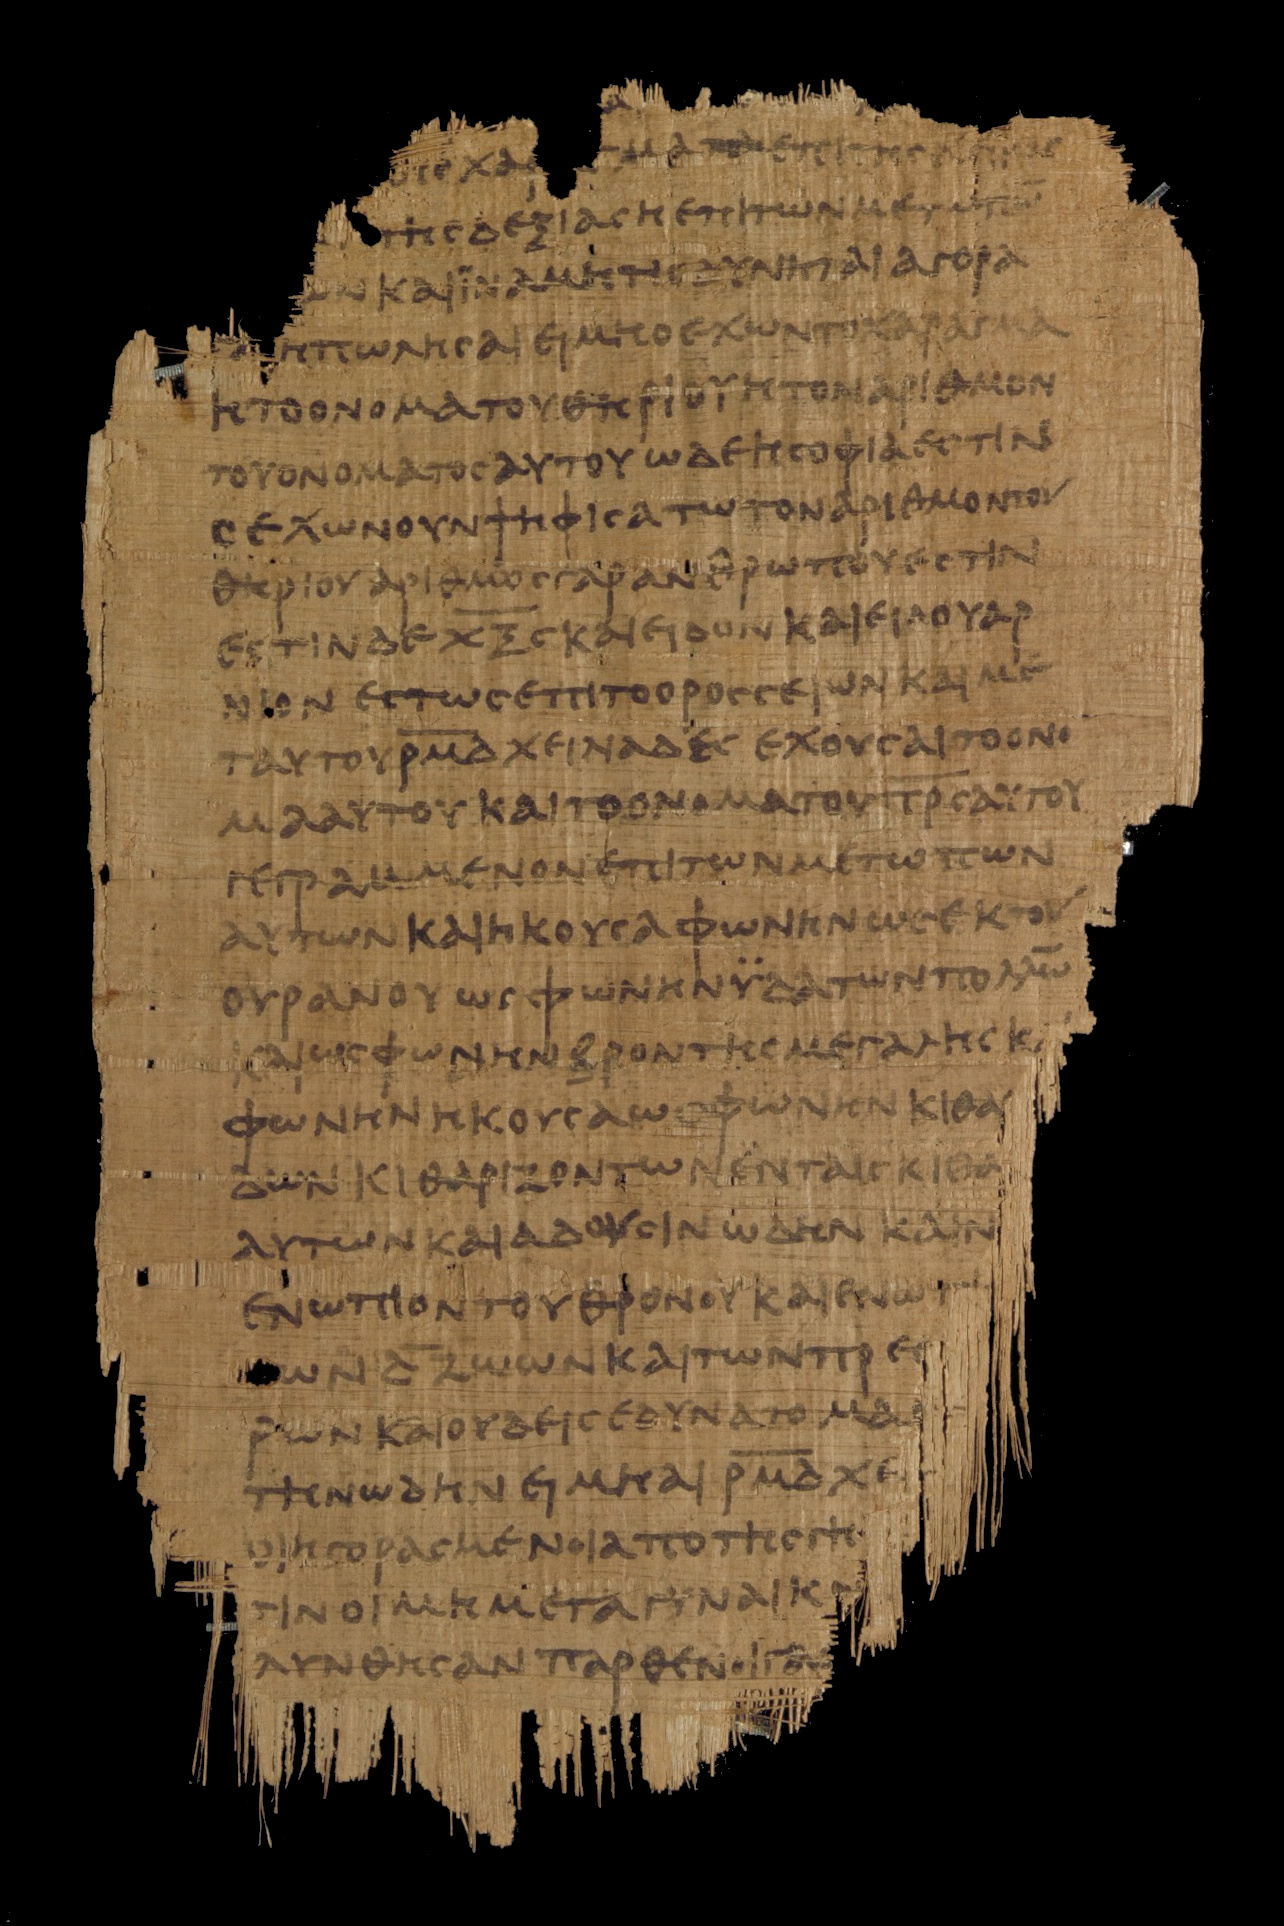 χαραγματα επι της χειρος
της δεξιας η επι των μετωπω̅
ων και ϊνα μη τις δυνηται αγορα
η πωλησαι ει μη ο εχων το χαραγμα
η το ονομα του θηριου η τον αριθμον
του ονοματος αυτου ωδε η σοφια εστιν
ο εχων ουν ψηφισατω τον αριθμον του
θηριου αριθμος γαρ ανθρωπου εστιν
εστιν δε χ̅ξ̅ϛ̅ και ειδον και ειδου αρ
νιον εστως επι το ορος σειων και με
τ αυτου ρ̅μ̅δ̅ χειλιαδες εχουσαι το ονο
μα αυτου και το ονομα του π̅ρ̅ς̅ αυτου
γεγραμμενον επι των μετωπων
αυτων και ηκουσα φωνην ως εκ του
ουρανου ως φωνην ϋδατων πολλω̅
και ως φωνην βροντης μεγαλης κα
φωνην ηκουσα ως φωνην κιθαρ
δων κιθαριζοντων εν ταις κιθα
αυτων και αδουσιν ωδην καιν
ενωπιον του θρονου και ενωπι
ων δ̅ ζωων και των πρεσ
ρων και ουδεις εδυνατο μα
την ωδην ει μη αι ρ̅μ̅δ̅ χει
οι ηγορασμενοι απο της γη
σιν οι μη μετα γυναικω
λυνθησαν παρθενοι γαρ